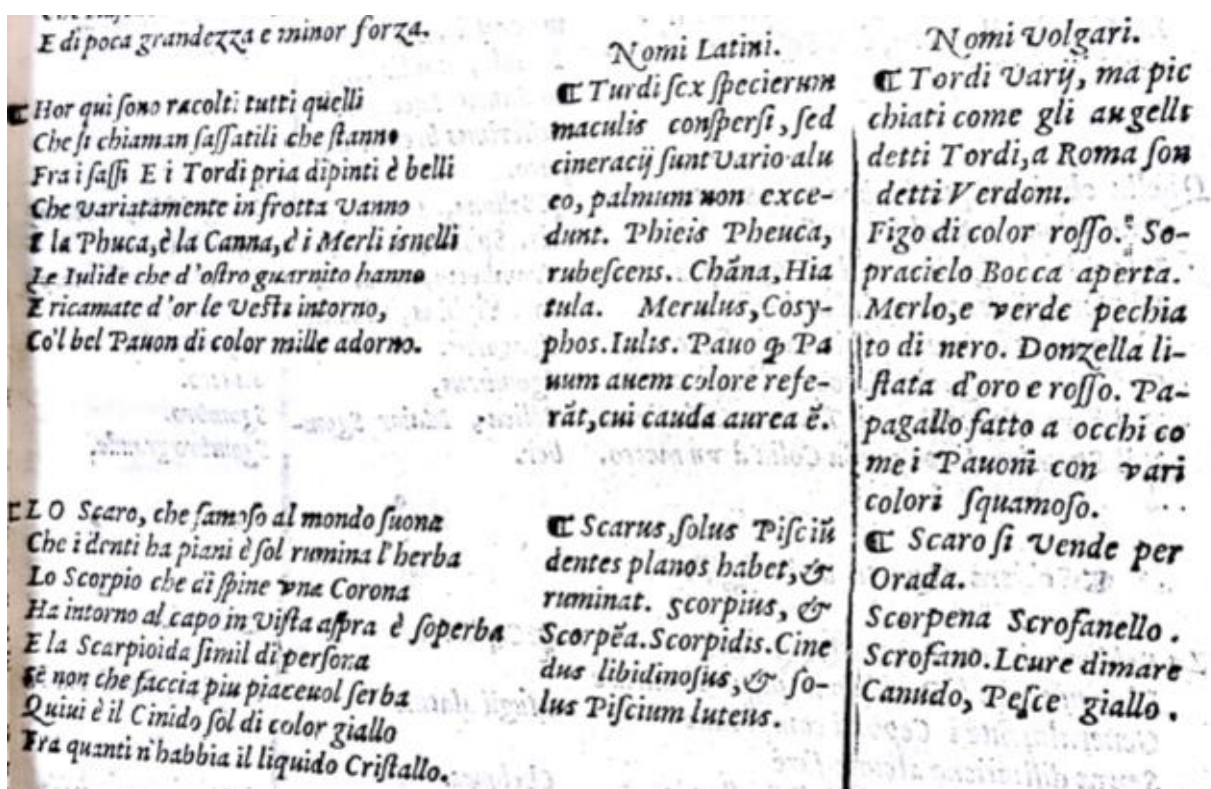 E di poca grandezza e minor forza.
¶Hor qui ſono racolti tutti quelli
Che ſi chiaman ſaſſatili che ſtanno
Fra i ſaſſi E i Tordi pria dipinti è belli
Che variatamente in frotta vanno
E la Phuca, è la Canna, è i Merli isnelli
Le Iulide che d'oſtro guarnito hanno
E ricamate d'or le veſti intorno,
Co'l bel Pauon di color mille adorno.
¶LO Scaro, che famoſo al mondo ſuona
Che i denti ha piani è ſol rumina l'herba
Lo Scorpio che di ſpine vna Corona
Ha intorno al capo in viſta aſpra è ſoperba
E la Scarpioida ſimil di perſona
Se non che faccia piu piaceuol ſerba
Quiui è il Cinido ſol di color giallo
Fra quanti n'habbia il liquido Criſtallo.
Nomi Latini.
¶Turdi ſex ſpecierum
maculis conſperſi, ſed
cineracij ſunt vario alu
eo, palmum non exce-
dunt. Phicis Pheuca,
rubeſcens. Chãna, Hia
tula. Merulus, Coſy-
phos. Iulis. Pauo ꝙ Pa
uum auem colore refe-
rãt, cui cauda aurea ẽ.
¶ Scarus, ſolus Piſciũ
dentes planos habet, &
ruminat. Scorpius, &
Scorpẽa. Scorpidis. Cine
dus libidinoſus, & ſo-
lus Piſcium luteus.
Nomi volgari.
¶ Tordi Varij, ma pic
chiati come gli augelli
detti Tordi, a Roma ſon
detti Verdoni.
Figo di color roſſo. So-
pracielo Bocca aperta.
Merlo, e verde pechia
to di nero. Donzella li-
ſtata d'oro e roſſo. Pa-
pagallo fatto a occhi co
me i Pauoni con vari
colori ſquamoſo.
¶ Scaro ſi vende per
Orada.
Scorpena Scrofanello.
Scrofano. Leure dimare
Canudo, Peſce giallo.